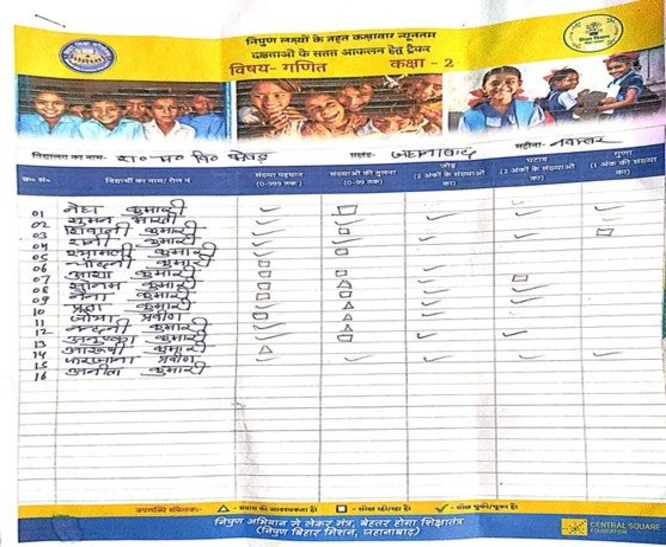 निपुण लक्ष्यों के तहत कक्षावार न्यूनतम
दक्षताओं के सतत आकलन हेतु ट्रैकर
विषय- गणित कक्षा - 2
विद्यालय का नाम- प्रखंड- जहानाबाद महीना- नवम्बर
क्र० सं० विद्यार्थी का नाम/ रोल न संख्या पहचान (0-999 तक) संख्याओं की तुलना (0-99 तक) जोड़ (2 अंकों के संख्याओं का) घटाव (2 अंकों के संख्याओं का) गुणा (1 अंक की संख्या का)
01 नेहा कुमारी
02 सुमन भारती
03 शिवानी कुमारी
04 रानी कुमारी
05 कुमारी
06 चाँदनी कुमारी
07 आशा कुमारी
08 सोनम कुमारी
09 नैना कुमारी
10 कुमारी
11 प्रवीण
12 कुमारी
13 अनुष्का कुमारी
14 आरूषी कुमारी
15 फरजाना प्रवीण
16 अनीता कुमारी
उपलब्धि संकेतक:- △ - प्रयास की आवश्यकता है। □ - सीख रही/रहा है। ✓ - सीख चुकी/चुका है।
निपुण अभियान से लेकर मंत्र, बेहतर होगा शिक्षातंत्र
(निपुण बिहार मिशन, जहानाबाद)
CENTRAL SQUARE
FOUNDATION